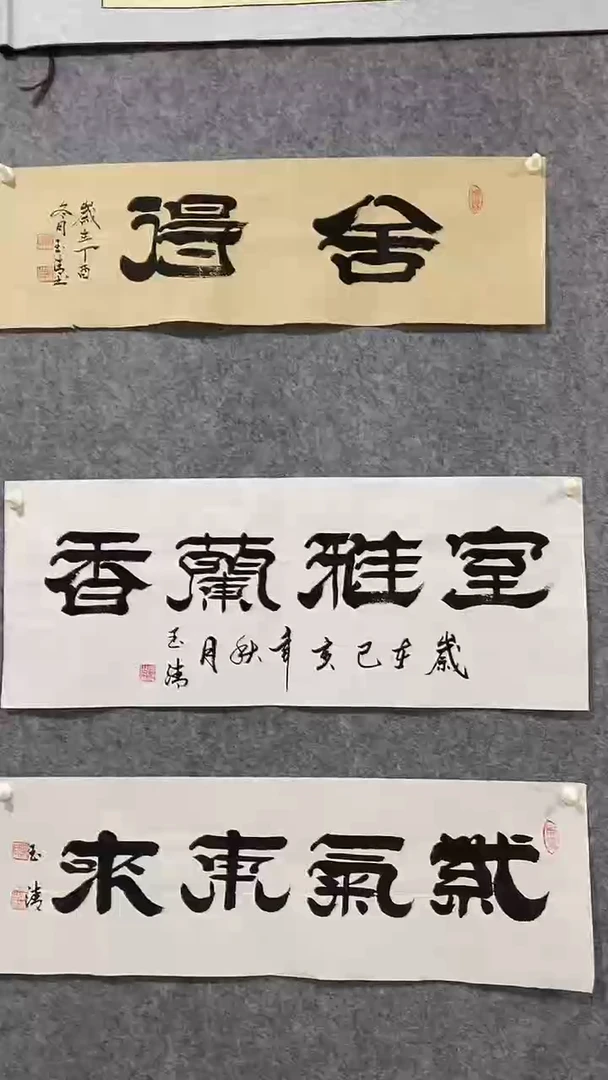 舍得
歲在丁酉
冬月玉清
室雅蘭香
歲在己亥年秋月
玉清
紫氣東來
玉清